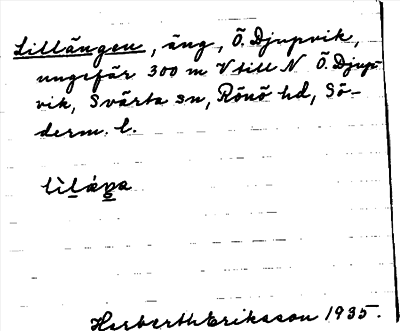 Lillängen, äng, Ö. Djupvik,
ungefär 300 m V till N Ö. Djup-
vik, Svärta sn, Rönö hd, Sö-
derm. l.
Herberth Eriksson 1935.